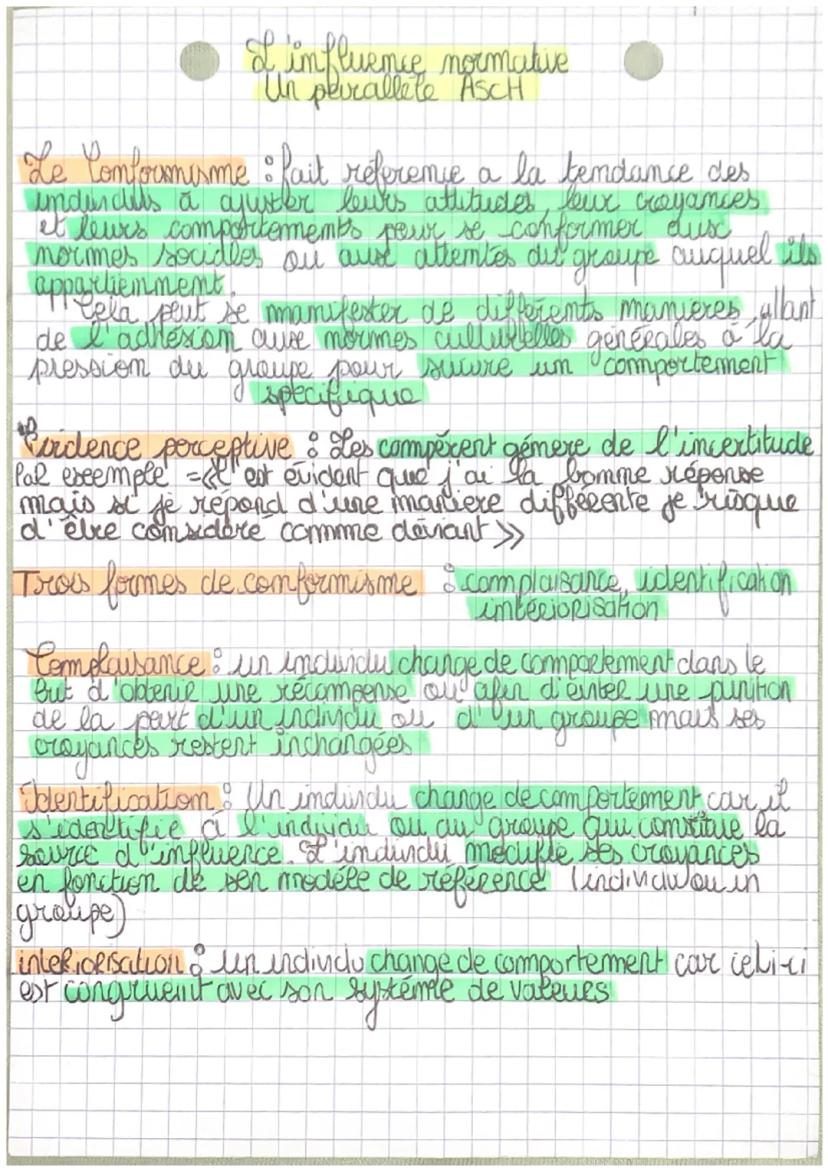 L'influence normative
Un pluralleté ASCH
Le Conformisme : fait réference a la tendance des
individus à ajuster leurs attitudes, leur croyances
et leurs comportements pour se conformer aux
normes sociales ou aux attentes du groupe auquel ils
appartiennent.
Cela peut se manifester de différents manières, allant
de l'adhésion aux normes culturelles générales à la
pression du groupe pour suivre un comportement
spécifique
Evidence perceptive : Les compèrent génere de l'incertitude
Par exemple = « C'est évident que j'ai la bonne réponse
mais si je répond d'une maniere différente je risque
d'être considéré comme déviant »
Trois formes de conformisme : complaisance, identification
intériorisation
Complaisance : un individu change de comportement dans le
but d'obtenir une récompense ou afin d'éviter une punition
de la part d'un individu ou d'un groupe mais ses
croyances restent inchangées
Identification : Un individu change de comportement car il
s'identifie à l'individu ou au groupe qui constitue la
source d'influence. L'individu modifie ses croyances
en fonction de son modéle de référence (individu ou un
groupe)
interiorisation : un individu change de comportement car celui-ci
est congruent avec son système de valeurs